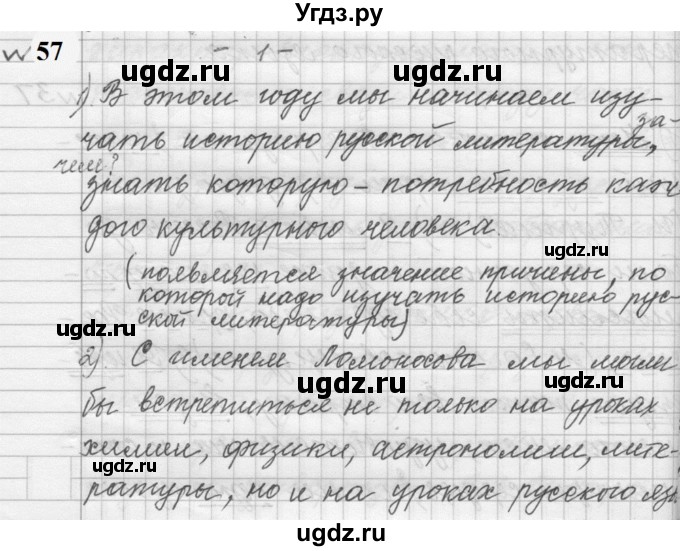 Угдз.ру
№ 57
- 1 -
1) В этом году мы начинаем изу-
чать историю русской литературы, за-
чем?
знать которую – потребность каж
дого культурного человека.
(появляется значение причины, по
которой надо изучать историю рус-
ской литературы)
2) С именем Ломоносова мы могли
бы встретиться не только на уроках
химии, физики, астрономии, лите-
ратуры, но и на уроках русского яз.
ugdz.ru
ugdz.ru
ugdz.ru
ugdz.ru
ugdz.ru
ugdz.ru
ugdz.ru
ugdz.ru
ugdz.ru
ugdz.ru
ugdz.ru